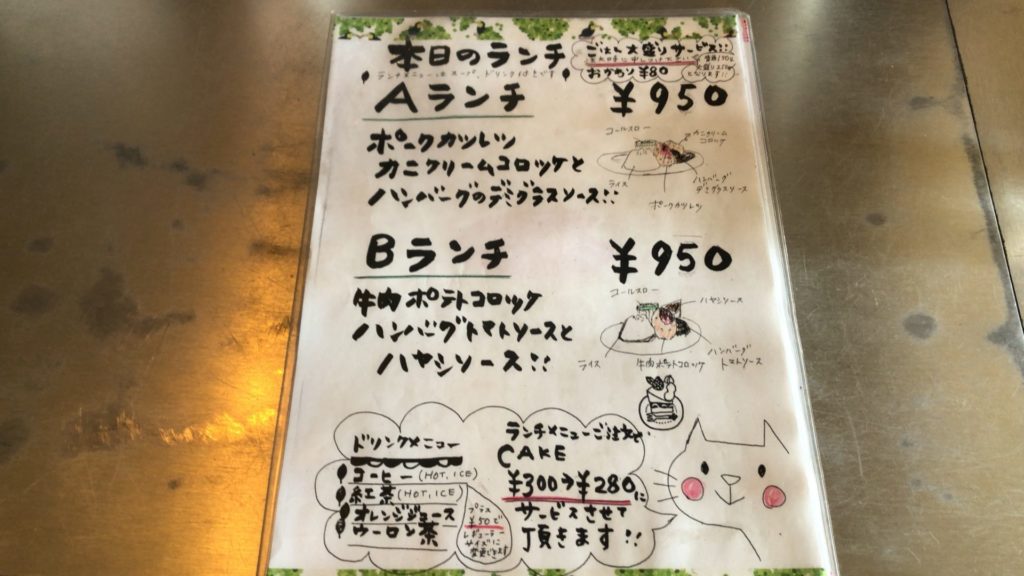 本日のランチ
ランチメニューは スープ、ドリンク付きです
ごはん大盛りサービス!!
おかわり ¥80
Aランチ ¥950
ポークカツレツ
カニクリームコロッケと
ハンバーグのデミグラスソース!!
コールスロー
カニクリーム
コロッケ
ライス
ハンバーグ
デミグラスソース
ポークカツレツ
Bランチ ¥950
牛肉ポテトコロッケ
ハンバーグトマトソースと
ハヤシソース!!
コールスロー
ハヤシソース
ライス
牛肉ポテトコロッケ
ハンバーグ
トマトソース
ドリンクメニュー
コーヒー(HOT, ICE)
紅茶(HOT, ICE)
オレンジジュース
ウーロン茶
プラス
¥50で
レギュラー
サイズに
変更できます
ランチメニューご注文で
CAKE
¥300→¥280に
サービスさせて
頂きます!!